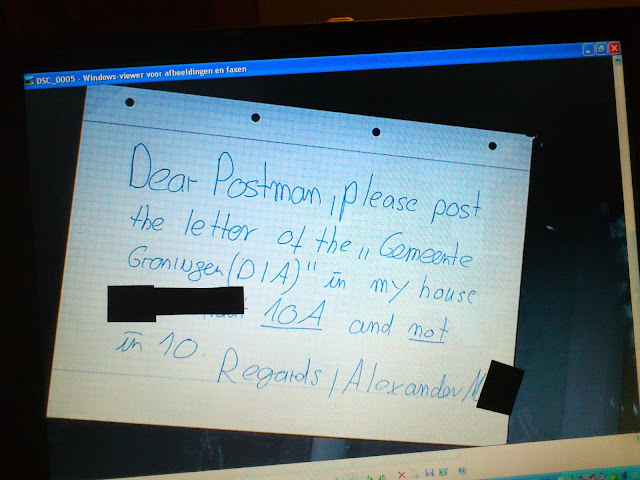 DSC_0005 - Windows-viewer voor afbeeldingen en faxen
Dear Postman, please post
the letter of the „Gemeente
Groningen (DIA)" in my house
10A and not
in 10.
Regards, Alexander